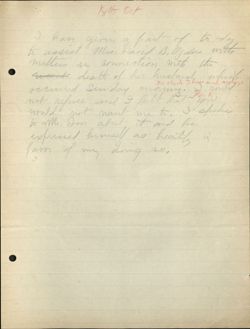 I have given a part of to day
to assist Mrs. David B. with
matters in connection with the
death of her husband, which
occurred Sunday morning. I could
not refuse and I felt that you
would not want me to. I spoke
to Mr. about it and he
expressed himself as heartily in
favor of my doing so.